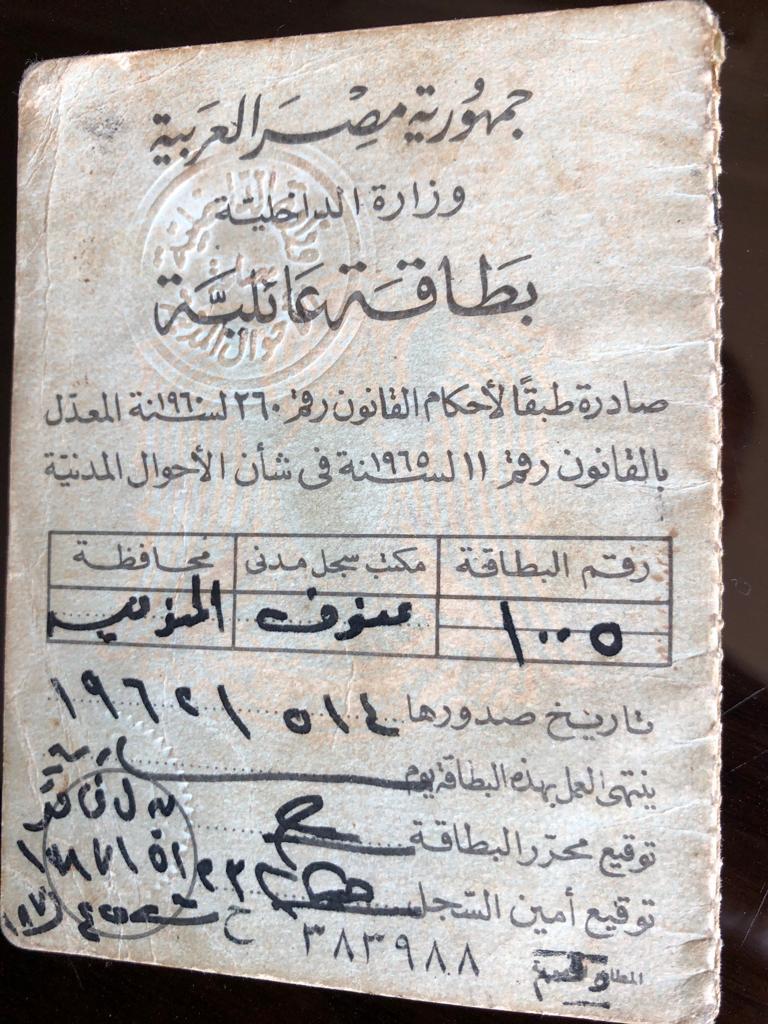 جمهورية مصر العربية
وزارة الداخلية
بطاقة عائلية
صادرة طبقًا لأحكام القانون رقم ٢٦٠ لسنة ١٩٦٠ المعدّل
بالقانون رقم ١١ لسنة ١٩٦٥ فى شأن الأحوال المدنية
رقم البطاقة مكتب سجل مدنى محافظة
١٠٠٥ منوف المنوفية
تاريخ صدورها
ينتهى العمل بهذه البطاقة يوم
توقيع محرّر البطاقة
بدل فاقد
توقيع أمين السّجل
ح ٣٨٣٩٨٨